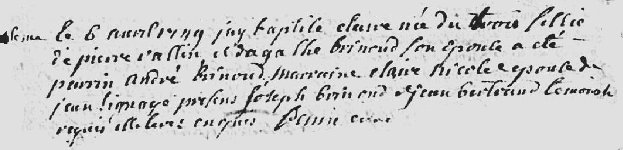 le 6 avril 1749 jay baptisé claire née du trois fillie
de pierre vallin et dagathe brinoud son epouse a été
parrin andré brinoud marraine claire nicole epouse de
jean lignage presens joseph brinond et jean bertrand temoins
requis illeteres enquis